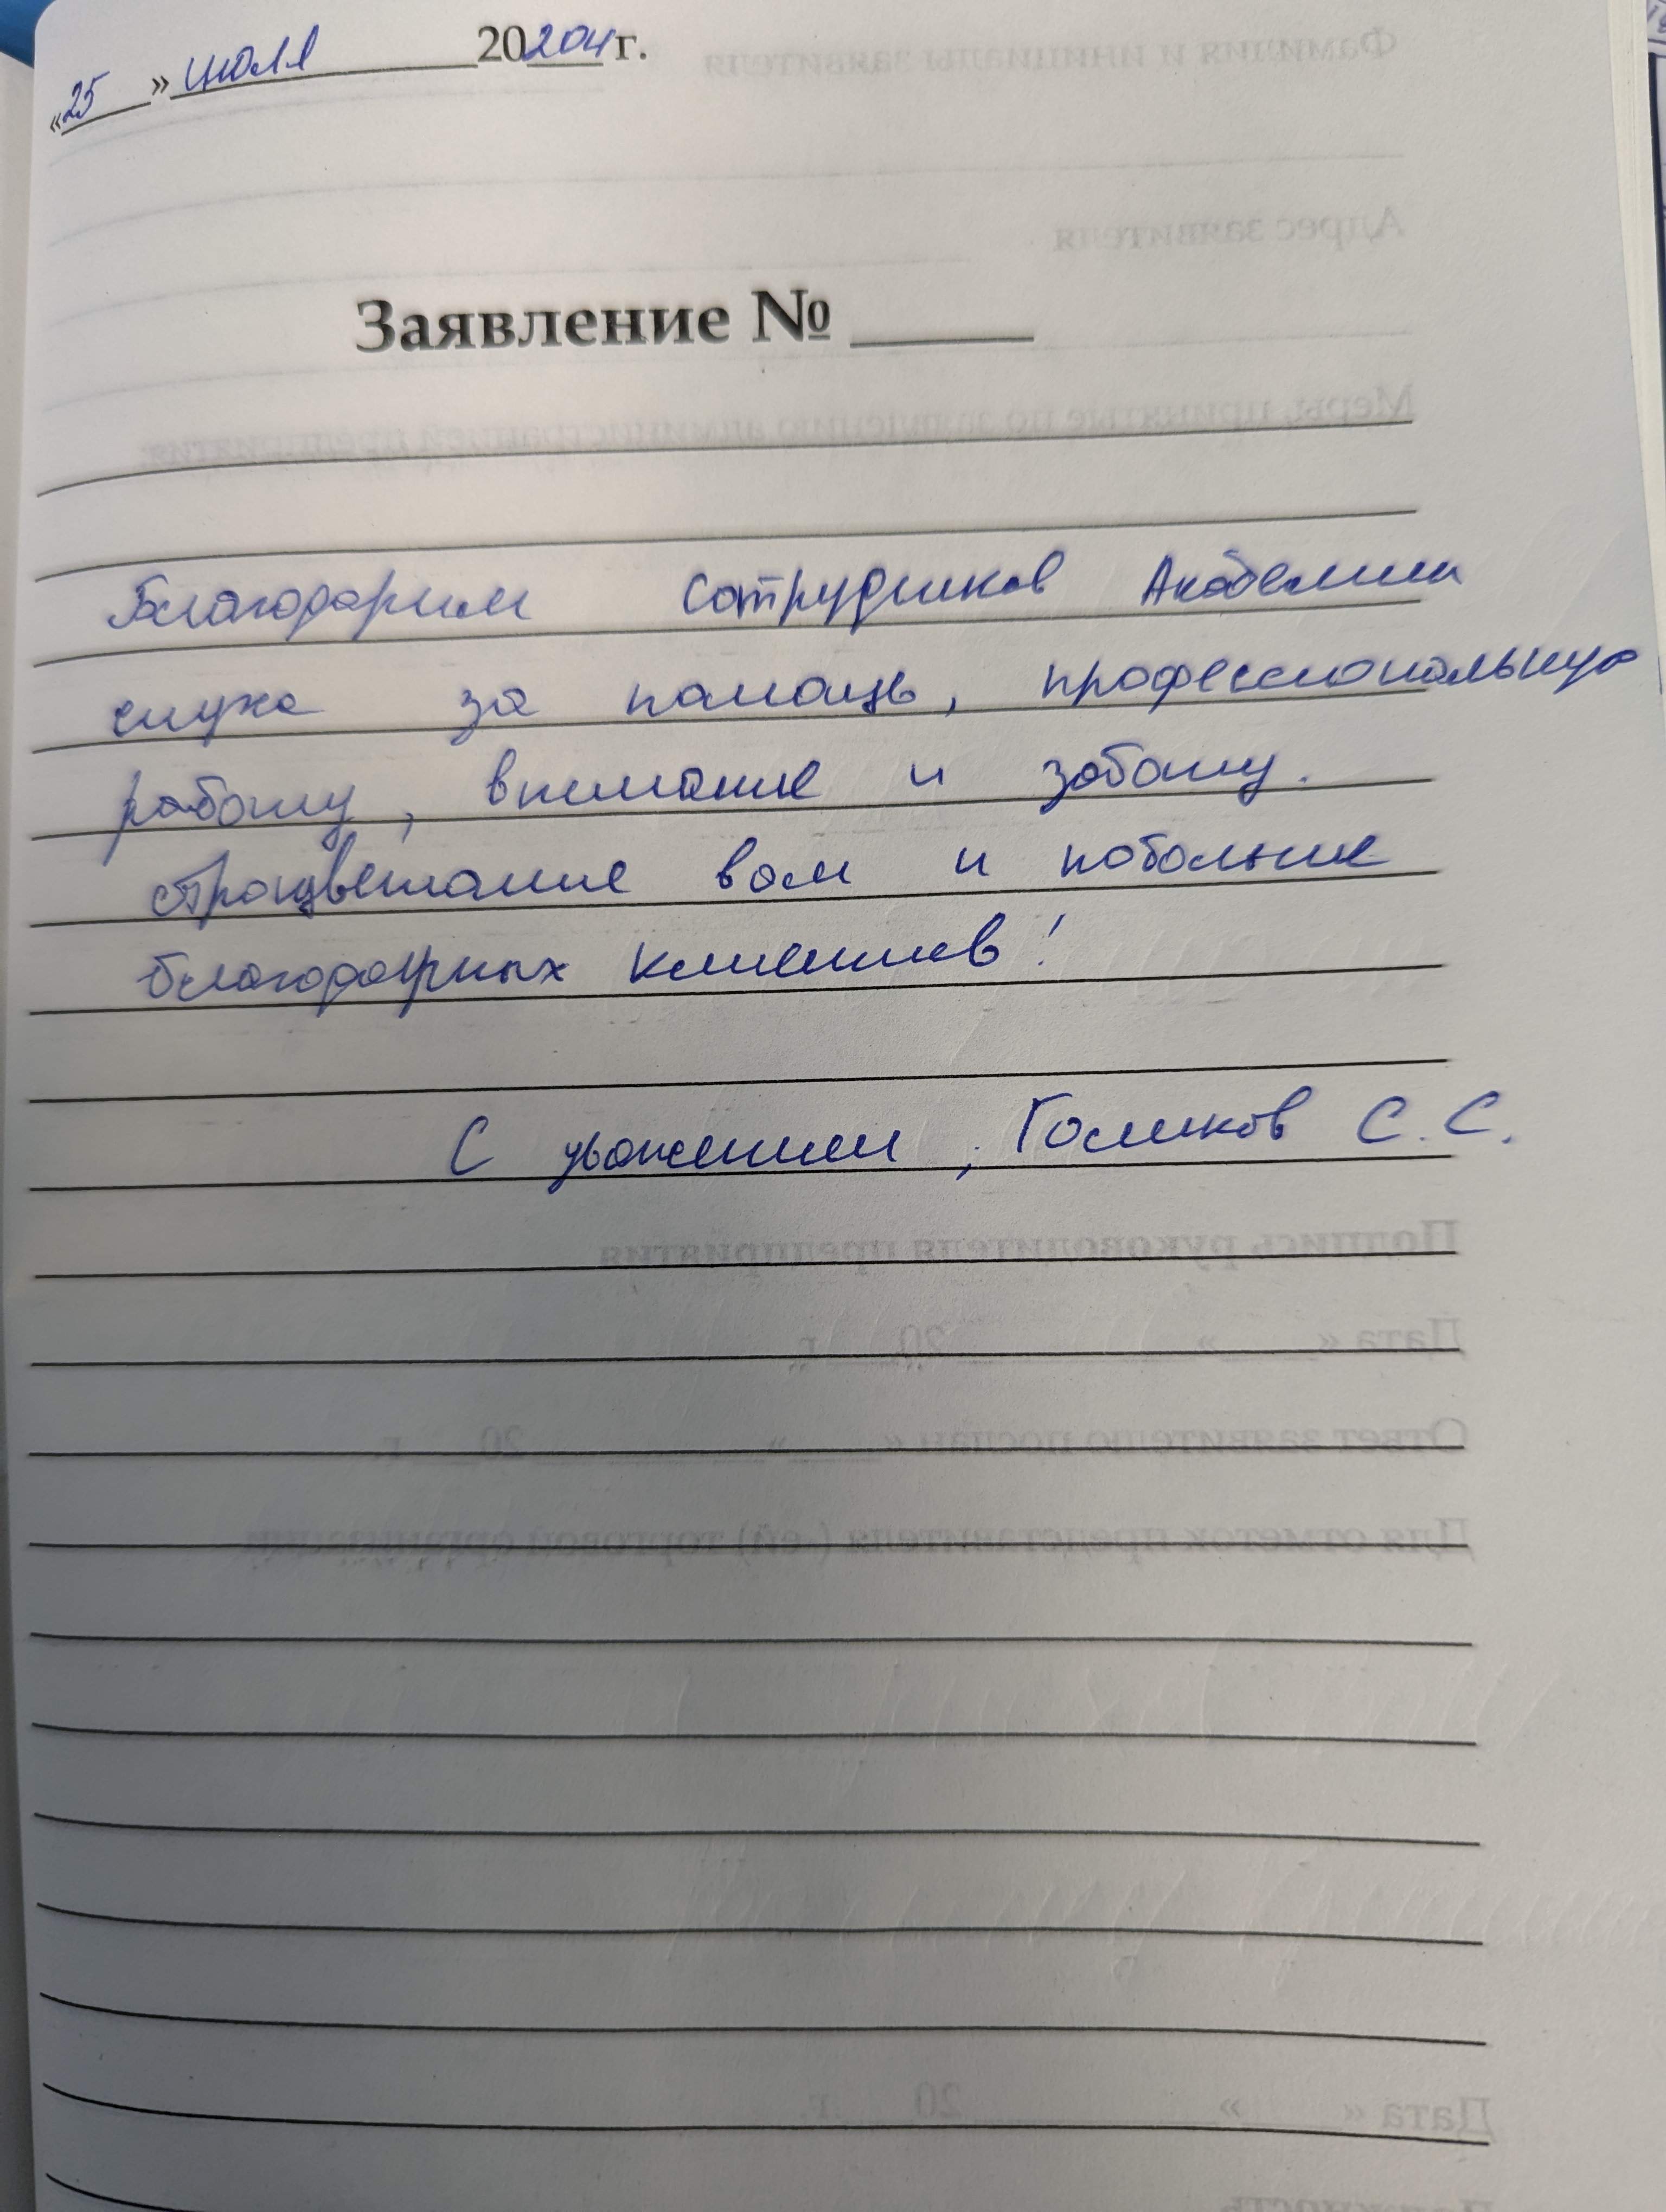 «25» июля 20204г.
Заявление №
Благодарим сотрудников Академии
слуха за помощь, профессиональную
работу, внимание и заботу.
Процветание вам и побольше
благодарных клиентов!
С уважением, Голиков С.С.